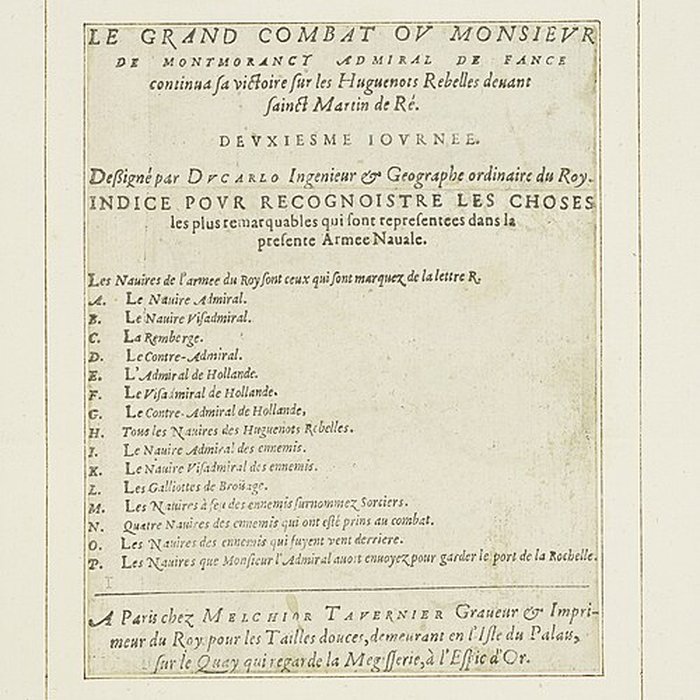 LE GRAND COMBAT OV MONSIEVR
DE MONTMORANCY ADMIRAL DE FANCE
continua ſa victoire ſur les Huguenots Rebelles deuant
ſainct Martin de Ré.
DEVXIESME IOVRNEE.
Deßigné par DVCARLO Ingenieur & Geographe ordinaire du Roy.
INDICE POVR RECOGNOISTRE LES CHOSES
les plus remarquables qui ſont representees dans la
presente Armee Nauale.
Les Nauires de l'armee du Roy ſont ceux qui ſont marquez de la lettre R.
A. Le Nauire Admiral.
B. Le Nauire Viſadmiral.
C. La Remberge.
D. Le Contre-Admiral.
E. L'Admiral de Hollande.
F. Le Viſadmiral de Hollande.
G. Le Contre-Admiral de Hollande,
H. Tous les Nauires des Huguenots Rebelles.
I. Le Nauire Admiral des ennemis.
K. Le Nauire Viſadmiral des ennemis.
L. Les Galliottes de Broüage.
M. Les Nauires à feu des ennemis ſurnommez Sorciers.
N. Quatre Nauires des ennemis qui ont eſté prins au combat.
O. Les Nauires des ennemis qui fuyent vent derriere.
P. Les Nauires que Monſieur l'Admiral auoit enuoyez pour garder le port de la Rochelle.
A Paris chez MELCHIOR TAVERNIER Graueur & Impri-
meur du Roy pour les Tailles douces, demeurant en l'Iſle du Palais,
ſur le Quay qui regarde la Megiſſerie, à l'Eſpic d'Or.